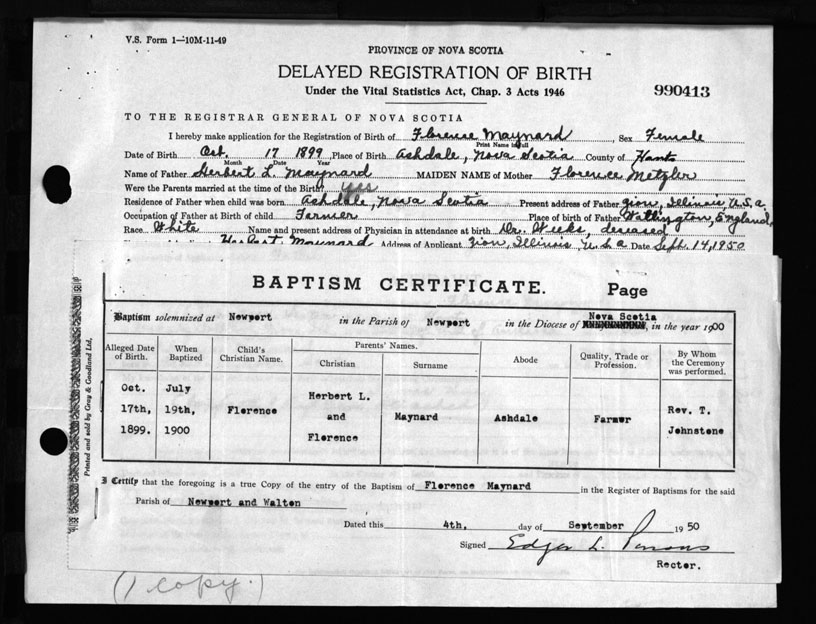 V.S. Form 1—10M-11-49
PROVINCE OF NOVA SCOTIA
DELAYED REGISTRATION OF BIRTH
Under the Vital Statistics Act, Chap. 3 Acts 1946
990413
TO THE REGISTRAR GENERAL OF NOVA SCOTIA
I hereby make application for the Registration of Birth of Florence Maynard, Sex Female
Print Name in Full
Date of Birth Oct. 17 1899, Place of Birth Ashdale, Nova Scotia County of Hants
Month Date Year
Name of Father Herbert L. Maynard MAIDEN NAME of Mother Florence Metzler
Were the Parents married at the time of the Birth Yes
Residence of Father when child was born Ashdale, Nova Scotia Present address of Father Zion, Illinois, U.S.a.
Occupation of Father at Birth of child Farmer Place of birth of Father Wallington, England.
Race White Name and present address of Physician in attendance at birth Dr. Weeks, deceased
Herbert Maynard Address of Applicant Zion, Illinois U.S.a Date Sept. 14, 1950
BAPTISM CERTIFICATE. Page
Baptism solemnized at Newport in the Parish of Newport in the Diocese of Nova Scotia, in the year 1900
Alleged Date of Birth.
When Baptized
Child's Christian Name.
Parents' Names.
Christian
Surname
Abode
Quality, Trade or Profession.
By Whom the Ceremony was performed.
Oct. 17th, 1899.
July 19th, 1900
Florence
Herbert L. and Florence
Maynard
Ashdale
Farmer
Rev. T. Johnstone
I Certify that the foregoing is a true Copy of the entry of the Baptism of Florence Maynard in the Register of Baptisms for the said
Parish of Newport and Walton
Dated this 4th. day of September 1950
Signed Edgar L. Parsons
Rector.
Printed and sold by Gray & Goodland Ltd.
(1 copy.)